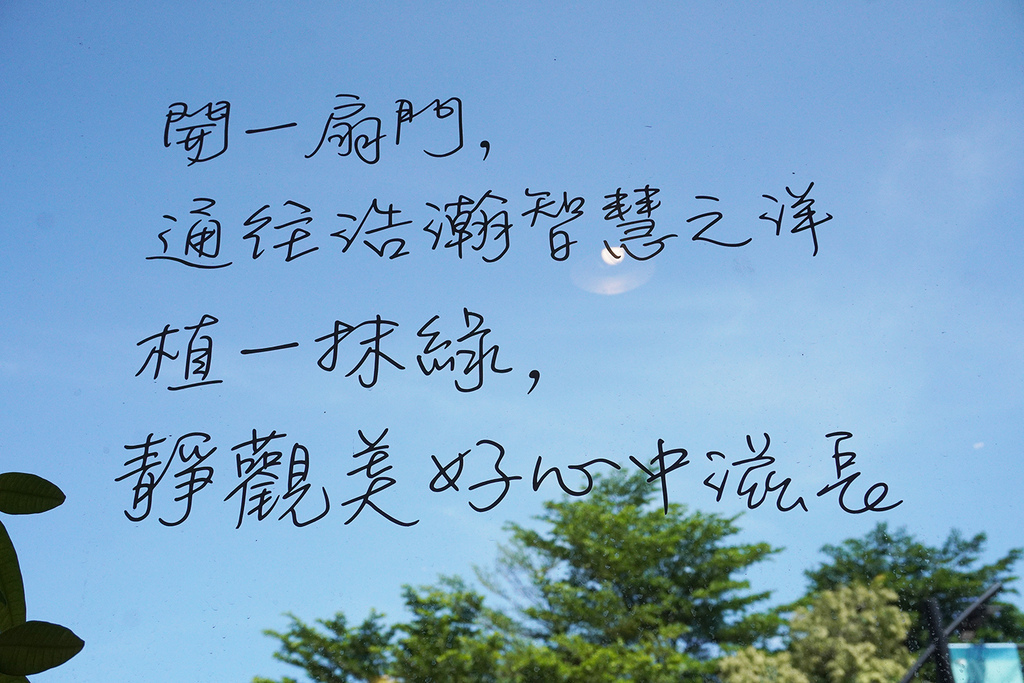 開一扇門,
通往浩瀚智慧之洋
植一抹綠,
靜觀美好心中滋長